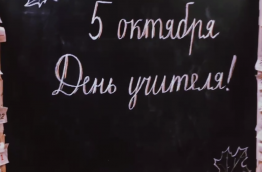 5 октября
День учителя!